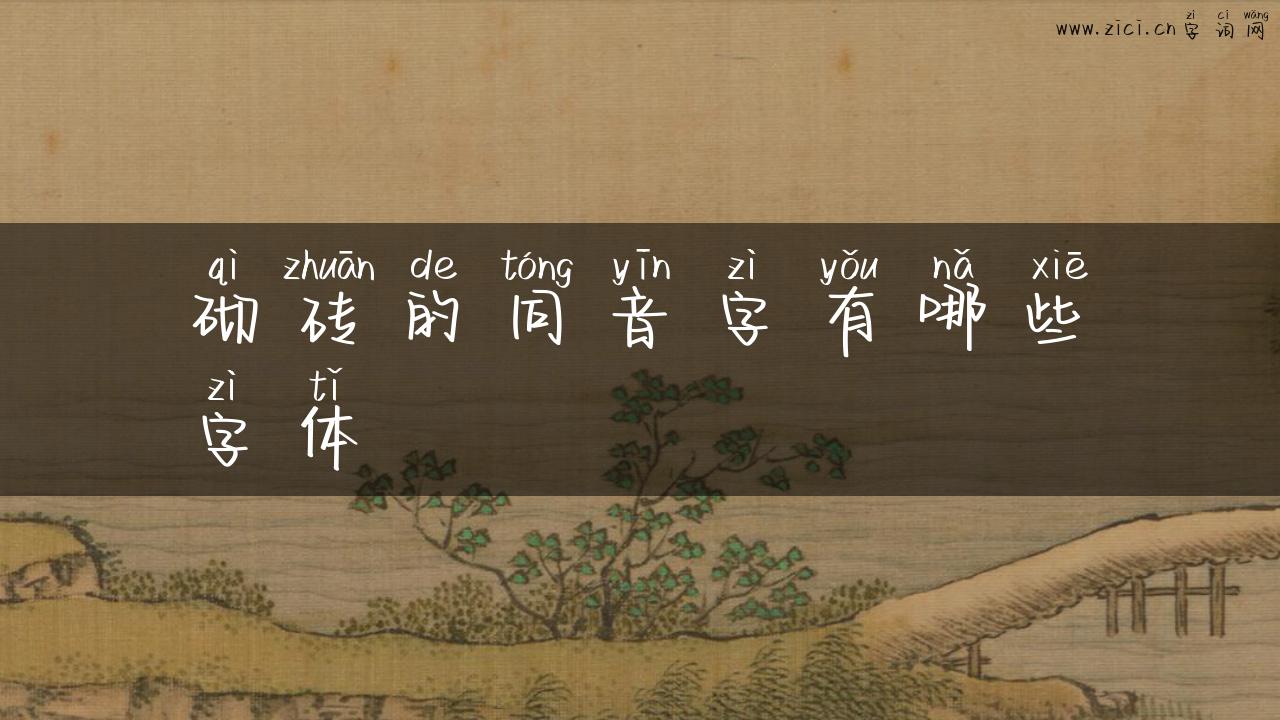 zì cí wǎng
www.zici.cn 字词网
qì zhuān de tóng yīn zì yǒu nǎ xiē
砌砖的同音字有哪些
zì tǐ
字体